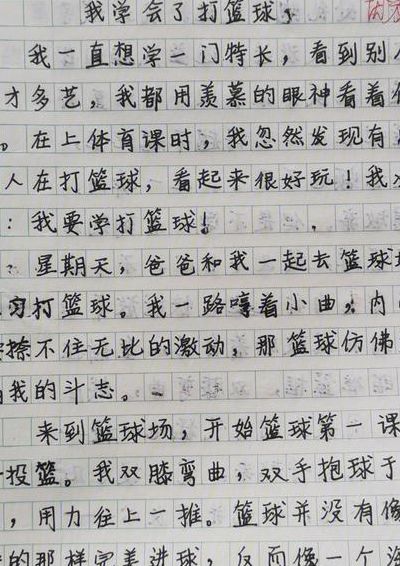 我学会了打篮球
我一直想学一门特长，看到别人
才多艺，我都用羡慕的眼神看着
。在上体育课时，我忽然发现有
人在打篮球，看起来很好玩！我
：我要学打篮球！
星期天，爸爸和我一起去篮球
习打篮球。我一路哼着小曲，内
捺不住无比的激动，那篮球仿佛
我的斗志。
来到篮球场，开始篮球第一课
投篮。我双膝弯曲，双手抱球于
，用力往上一推。篮球并没有像
的那样完美进球，反而像一个